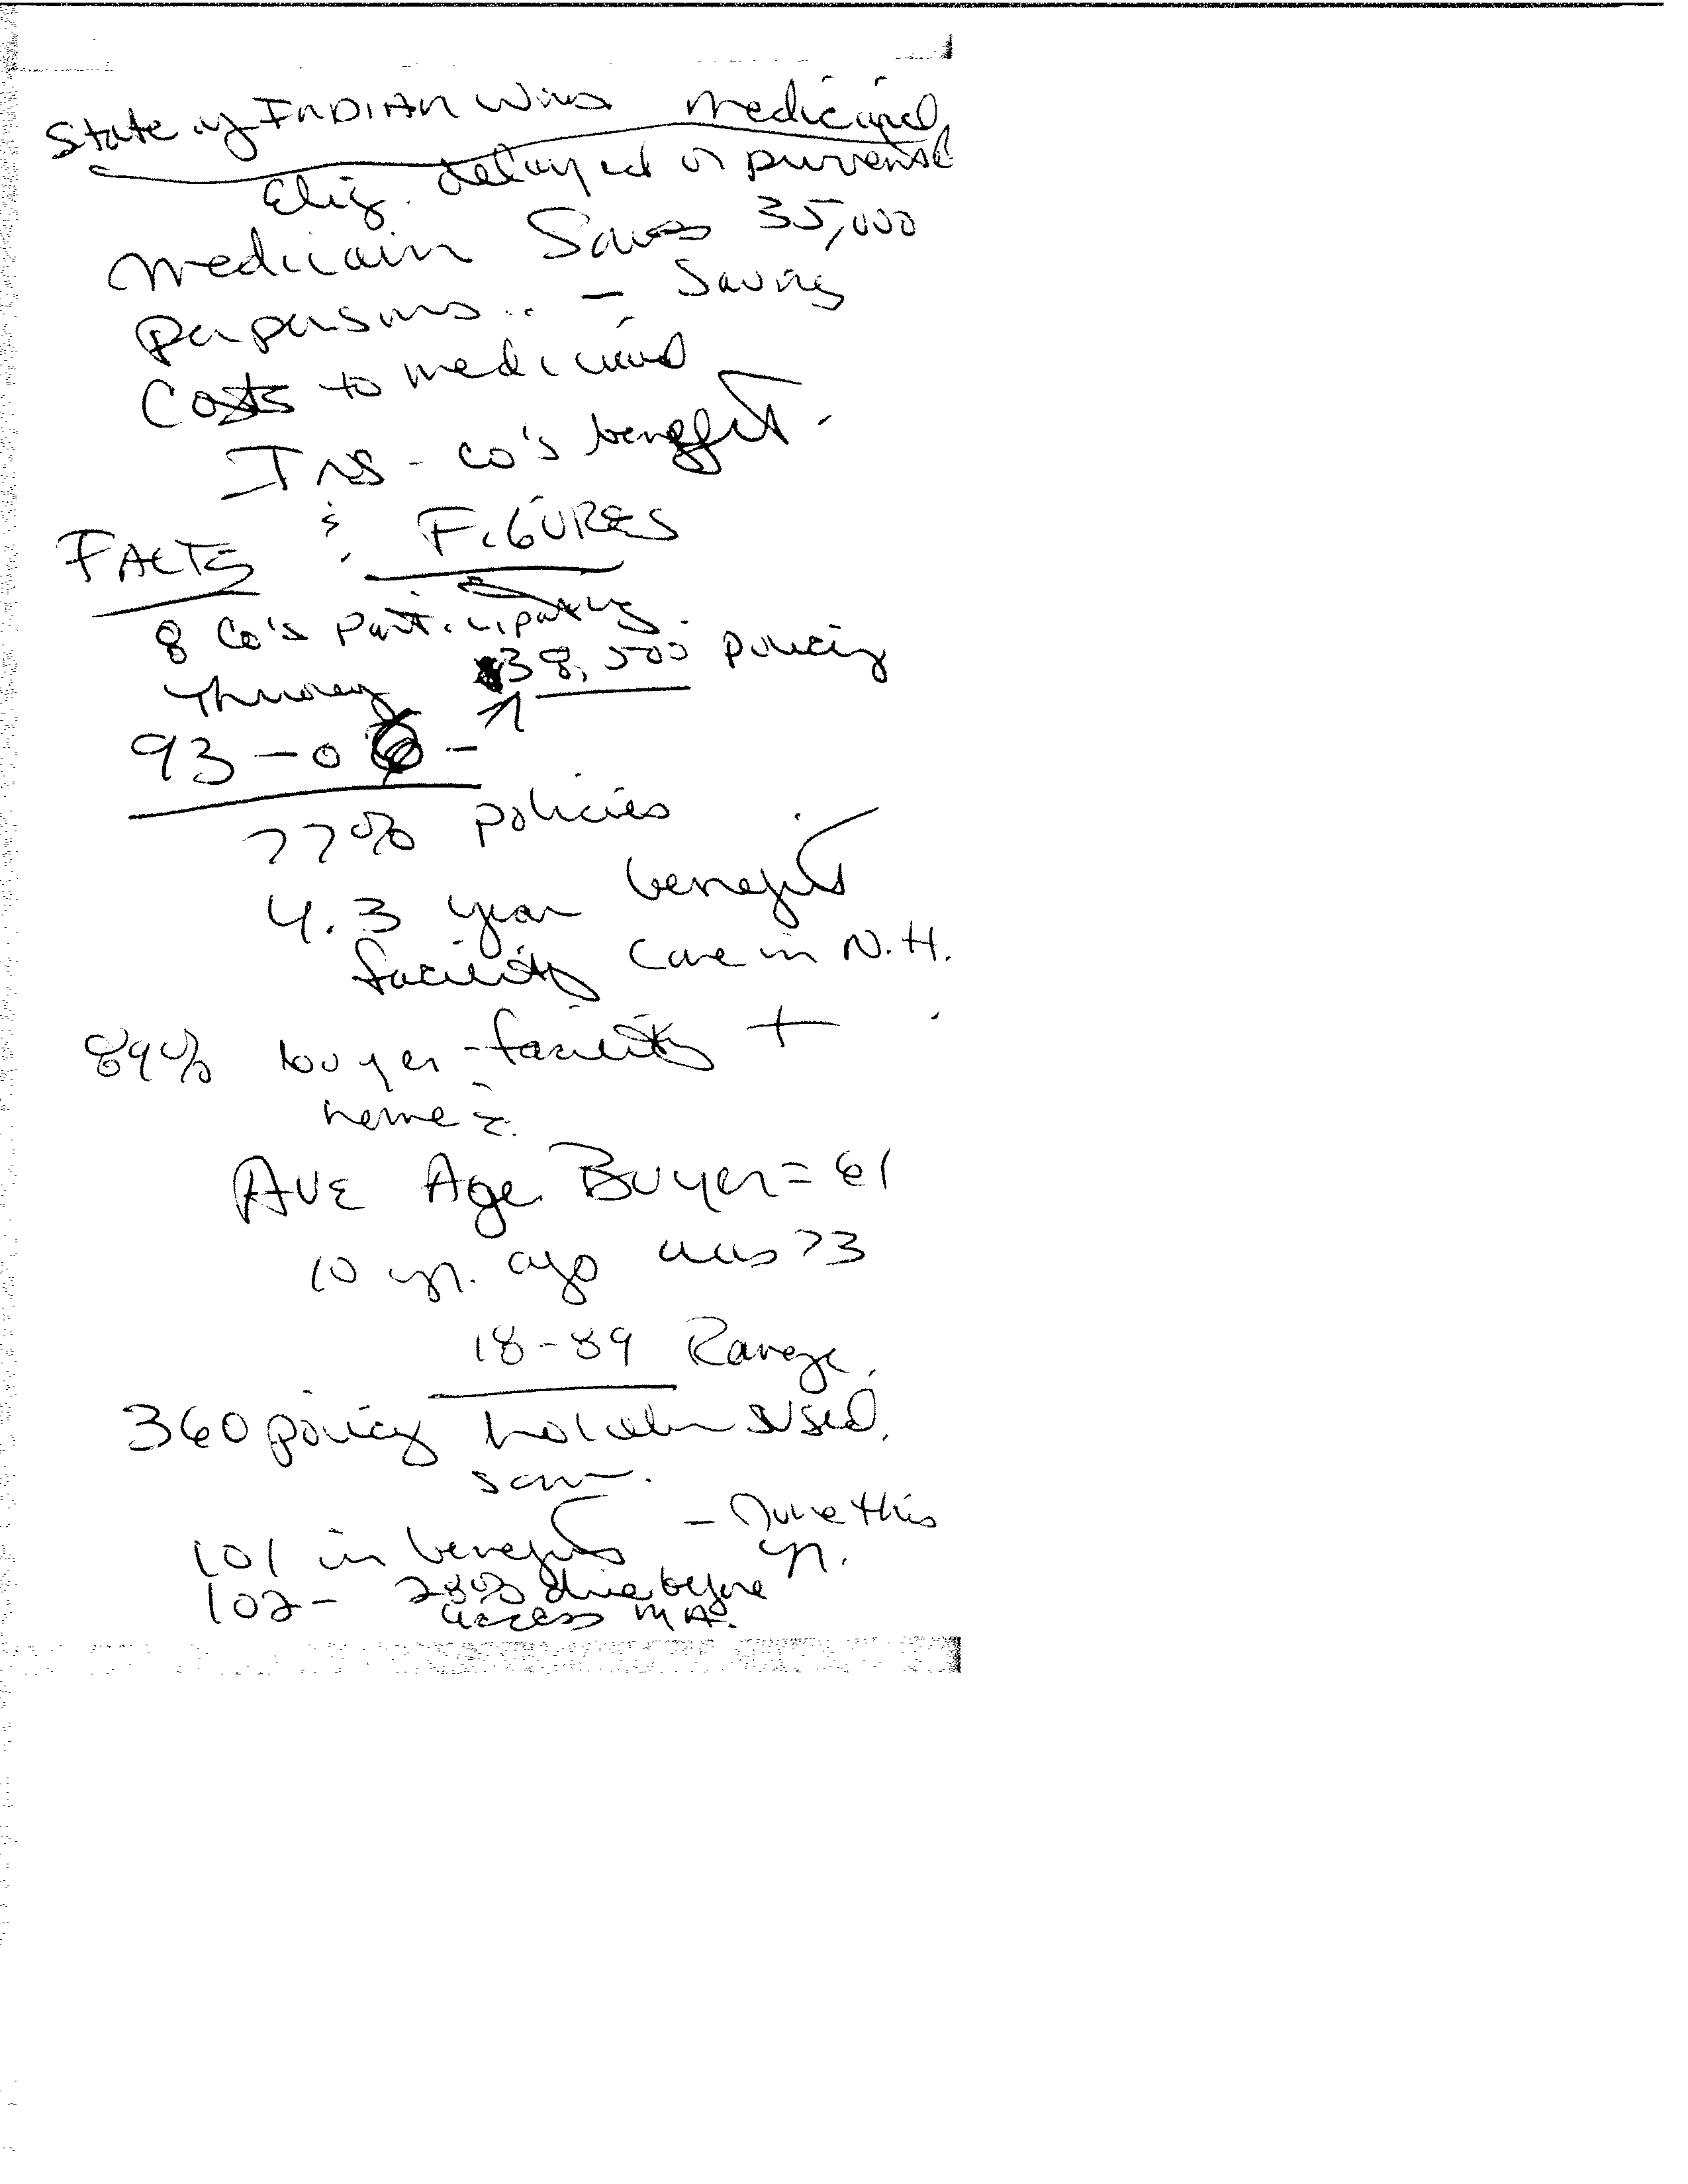 State of INDIAN Wins medicaid
Elig. delayed or
medicain Saves 35,000
per persons.. - Saving
Costs to medicaid
INS - co's benefit.
FACTS & FIGURES
8 Co's participating.
Through 38,500 policy
93-0
77% policies
4.3 year benefits
facility care in N.H.
89% buyer - facility +
home
AVE Age Buyer = 61
10 yr. ago was 73
18-89 Range
360 policy holder used
101 in benefits - June this
yr.
102 - 28% die before
access MA.